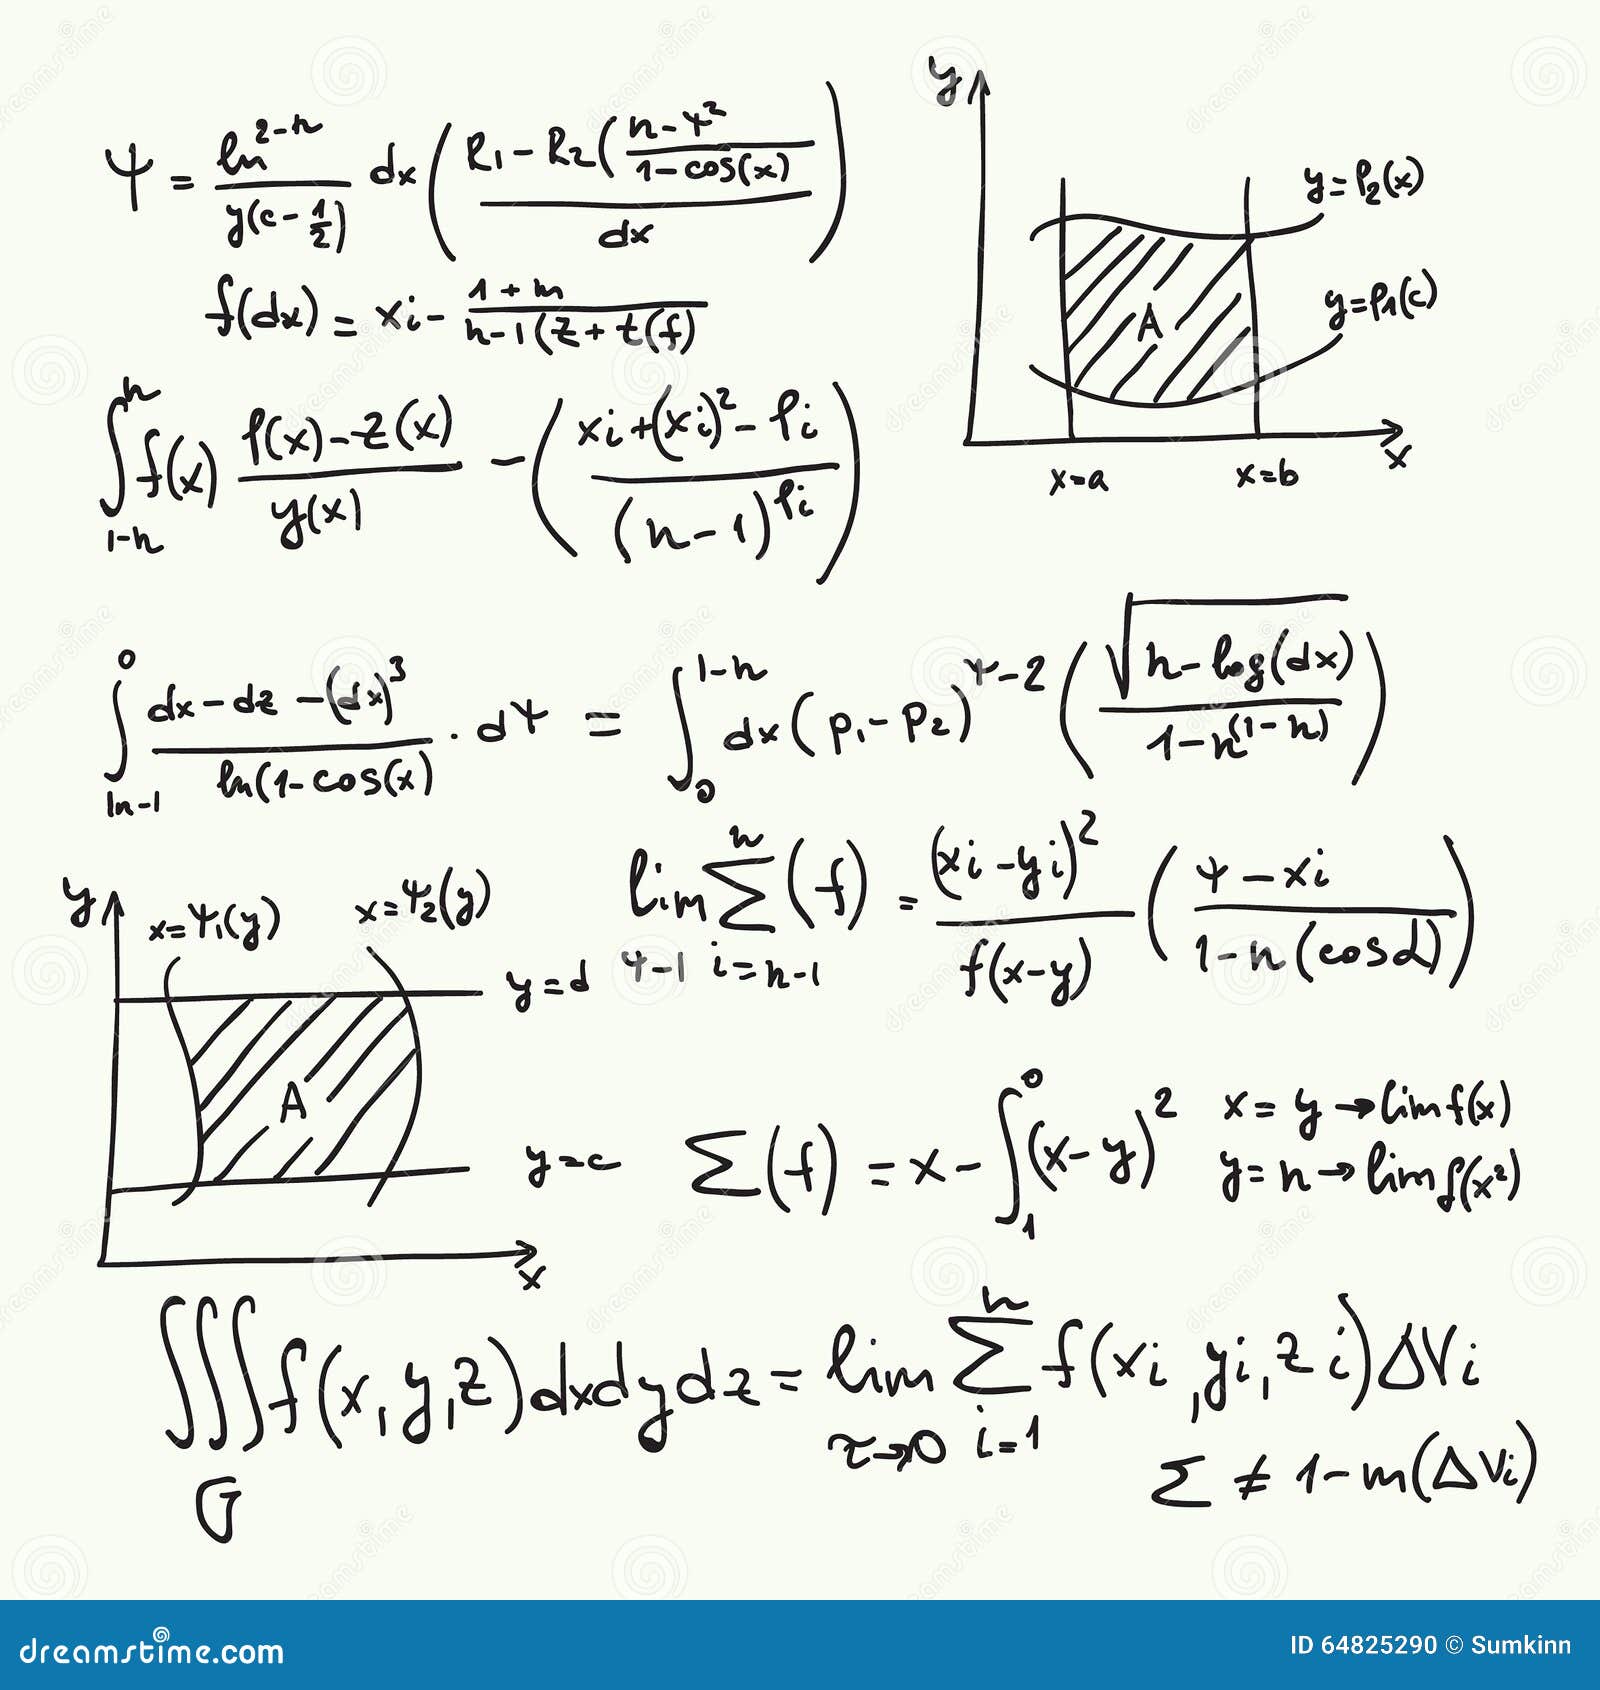 ψ = ln^(2-n) / y(c - 1/2) dx ( R₁ - R₂( (n-ψ²) / (1-cos(x)) / dx )
f(dx) = xi - (1+m) / (n-1(z+t(f))
∫_{1-n}^{n} f(x) (P(x)-z(x)) / y(x) - ( (xi+(xi)²-Pi) / (n-1)^{Pi} )
y
y=P₂(x)
y=P1(c)
A
x=a x=b x
∫_{ln-1}^{0} (dx-dz-(dx)³) / ln(1-cos(x) · dψ = ∫_{0}^{1-n} dx(p₁-p₂)^{ψ-2} ( √(n-log(dx)) / 1-n^{(1-n)} )
lim_{ψ-1} Σ_{i=n-1}^{n} (f) = (xi-yi)² / f(x-y) ( (ψ-xi) / 1-n(cosα) )
y
x=ψ₁(y) x=ψ₂(y)
y=d
A
y=c
x
Σ(f) = x - ∫_{1}^{0} (x-y)²
x = y → lim f(x)
y = n → lim f(x²)
∫∫∫_G f(x,y,z)dxdydz = lim_{τ→0} Σ_{i=1}^{n} f(xi,yi,zi)ΔVi
Σ ≠ 1-m(ΔVi)
dreamstime.com
ID 64825290 © Sumkinn